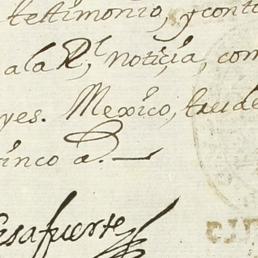 testimonio, y cont
a la Rl. noticia, com
yes. Mexico, tres de
inco a.
safuerte